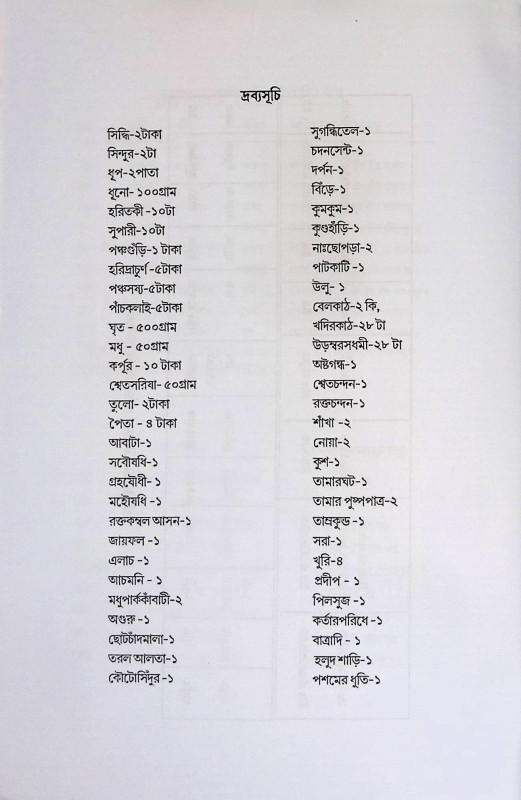 দ্রব্যসূচি
সিদ্ধি-২টাকা
সিন্দুর-২টা
ধূপ-২পাতা
ধূনো- ১০০গ্রাম
হরিতকী -১০টা
সুপারী-১০টা
পঞ্চগুঁড়ি-১ টাকা
হরিদ্রাচুর্ণ-৫টাকা
পঞ্চসয্য-৫টাকা
পাঁচকলাই-৫টাকা
ঘৃত - ৫০০গ্রাম
মধু - ৫০গ্রাম
কর্পূর - ১০ টাকা
শ্বেতসরিষা- ৫০গ্রাম
তুলো- ২টাকা
পৈতা - ৪ টাকা
আবাটা-১
সবৌষধি-১
গ্রহযৌধী- ১
মহৌেযধি -১
রক্তকম্বল আসন-১
জায়ফল -১
এলাচ -১
আচমনি - ১
মধুপার্ককাঁবাটী-২
অগুরু -১
ছোটচাঁদমালা-১
তরল আলতা-১
কৌটোসিঁদুর -১
সুগন্ধিতেল-১
চদনসেন্ট-১
দর্পন-১
বিঁড়ে-১
কুমকুম-১
কুণ্ডহাঁড়ি-১
নাঃছোপড়া-২
পাটকাটি -১
উলু- ১
বেলকাঠ-২ কি,
খদিরকাঠ-২৮ টা
উড়ম্বরসধমী-২৮ টা
অষ্টগন্ধ-১
শ্বেতচন্দন-১
রক্তচন্দন-১
শাঁখা -২
নোয়া-২
কুশ-১
তামারঘট-১
তামার পুষ্পপাত্র-২
তাম্রকুন্ড -১
সরা-১
খুরি-৪
প্রদীপ - ১
পিলসুজ -১
কর্তারপরিধে -১
বাত্রাদি - ১
হলুদ শাড়ি-১
পশমের ধুতি-১